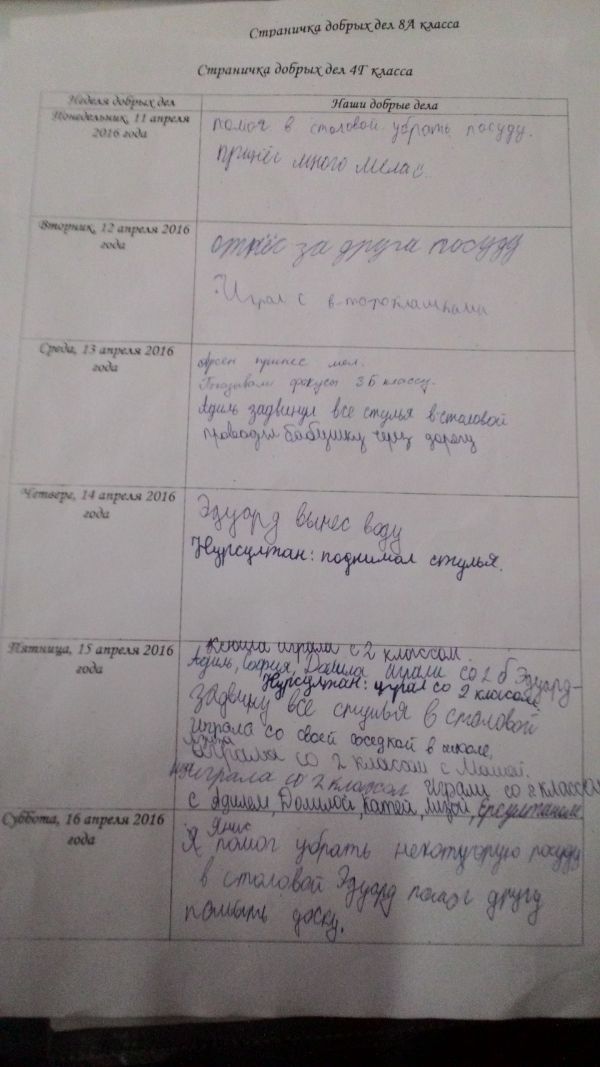 Страничка добрых дел 8А класса
Страничка добрых дел 4Г класса
Неделя добрых дел
Наши добрые дела
Понедельник, 11 апреля
2016 года
помог в столовой убрать посуду.
принёс много мела
Вторник, 12 апреля 2016
года
отнёс за друга посуду
Играл с
Среда, 13 апреля 2016
года
Арсен принес мел.
Показывали фокусы 3Б классу.
Адиль задвинул все стулья в столовой
проводил бабушку через дорогу
Четверг, 14 апреля 2016
года
Эдуард вынес воду
Нурсултан: поднимал стулья.
Пятница, 15 апреля 2016
года
Ксюша играла с 2 классом.
Адиль, София, Данила играли со 2 б Эдуард-
Нурсултан: играл со 2 классом
задвину все стулья в столовой
играла со своей соседкой в школе,
играла со 2 класом с Машей.
играла со 2 классом играли со 2 классом
с Адилем, Данилой, Катей, Лизой, Ерсултаном
Суббота, 16 апреля 2016
года
Янис
Я помог убрать посуду
в столовой Эдуард помог другу
помыть доску.